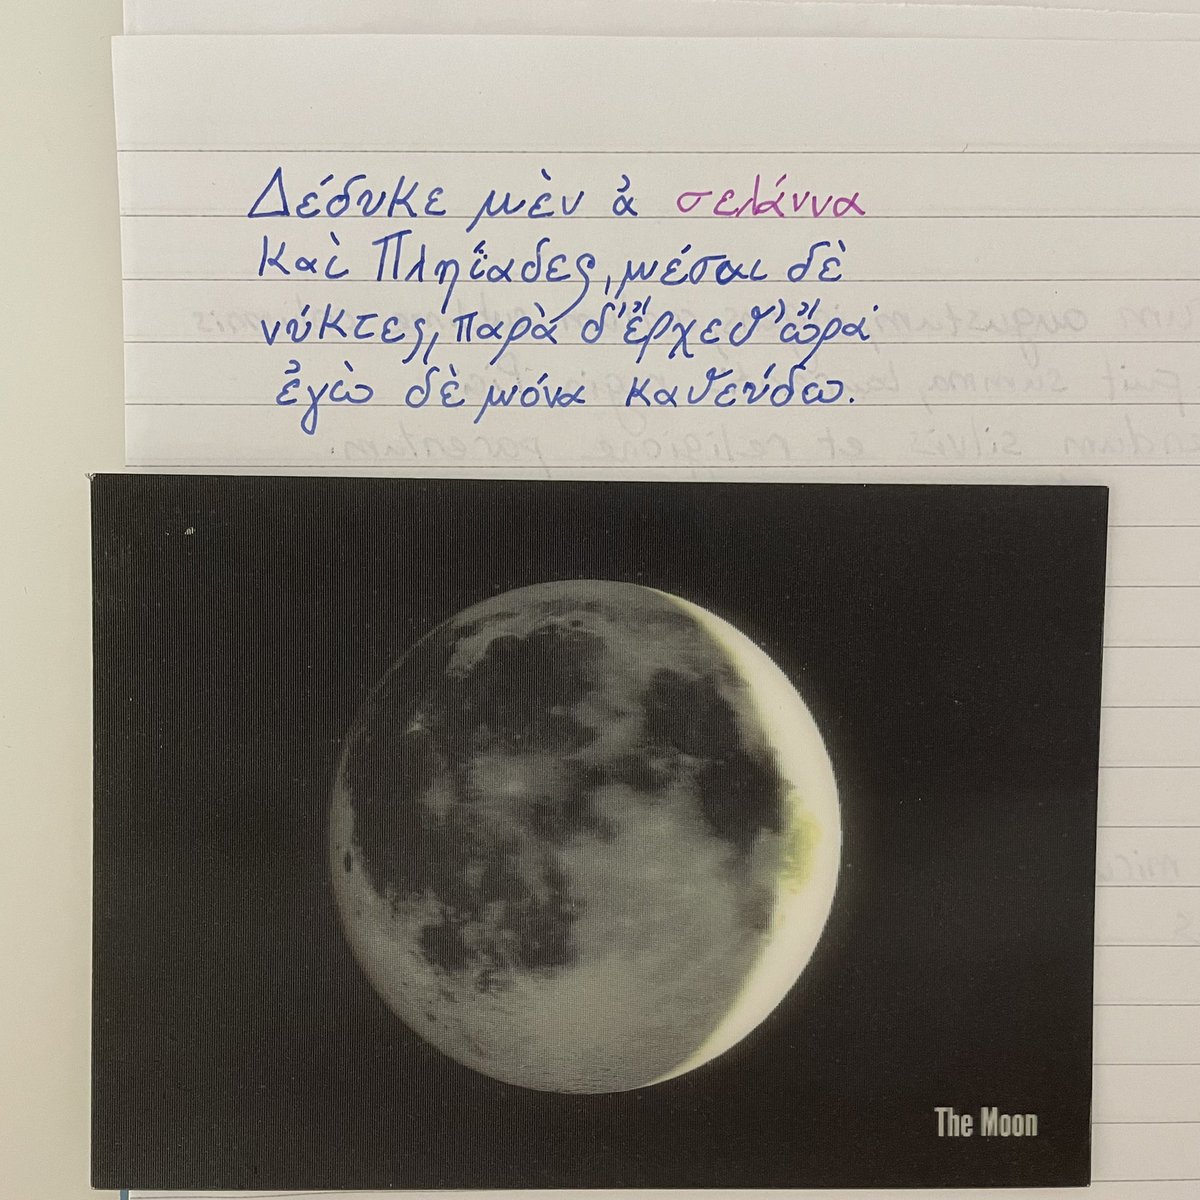 Δέδυκε μὲν ἀ σελάννα
καὶ Πληΐαδες, μέσαι δὲ
νύκτες, παρὰ δ' ἔρχεθ' ὤρα·
ἐγὼ δὲ μόνα καθεύδω.
The Moon